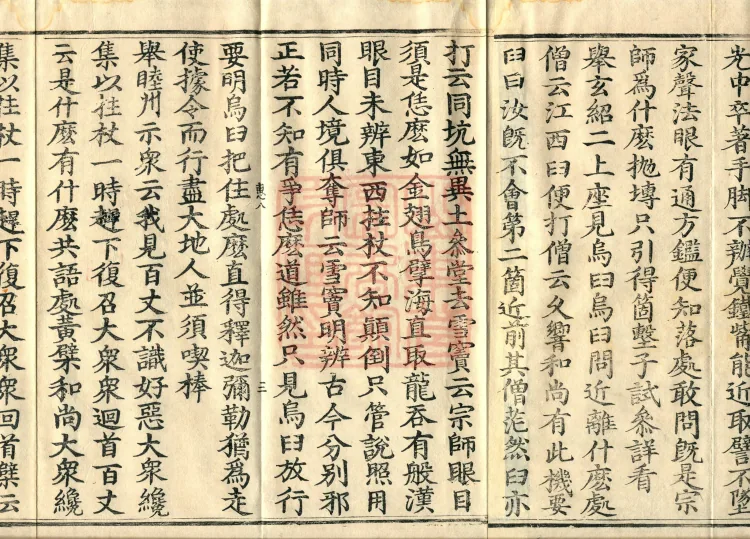 光中卒著手脚不辨覺鐘能近取譬不墮
家聲法眼有通方鑑便知落處敢問既是宗
師爲什麽抛塼只引得箇墼子試叅詳看
舉玄紹二上座見烏臼烏臼問近離什麽處
僧云江西臼便打僧云乆響和尚有此機要
臼曰汝既不會第二箇近前其僧茫然臼亦
打云同坑無異土叅堂去雪竇云宗師眼目
須是恁麽如金翅鳥孽海直取龍吞有般漢
眼目未辨東西拄杖不知顛倒只管說照用
同時人境俱奪師云雪竇明辨古今分別邪
正若不知有爭恁麽道雖然只見烏臼放行
三
要明烏臼把住處麽直得釋迦彌勒猶爲走
使據令而行盡大地人並須喫棒
舉睦州示衆云我見百丈不識好惡大衆纔
集以拄杖一時趕下復召大衆衆迴首百丈
云是什麽有什麽共語處黄檗和尚大衆纔
集以拄杖一時趕下復召大衆衆回首檗云